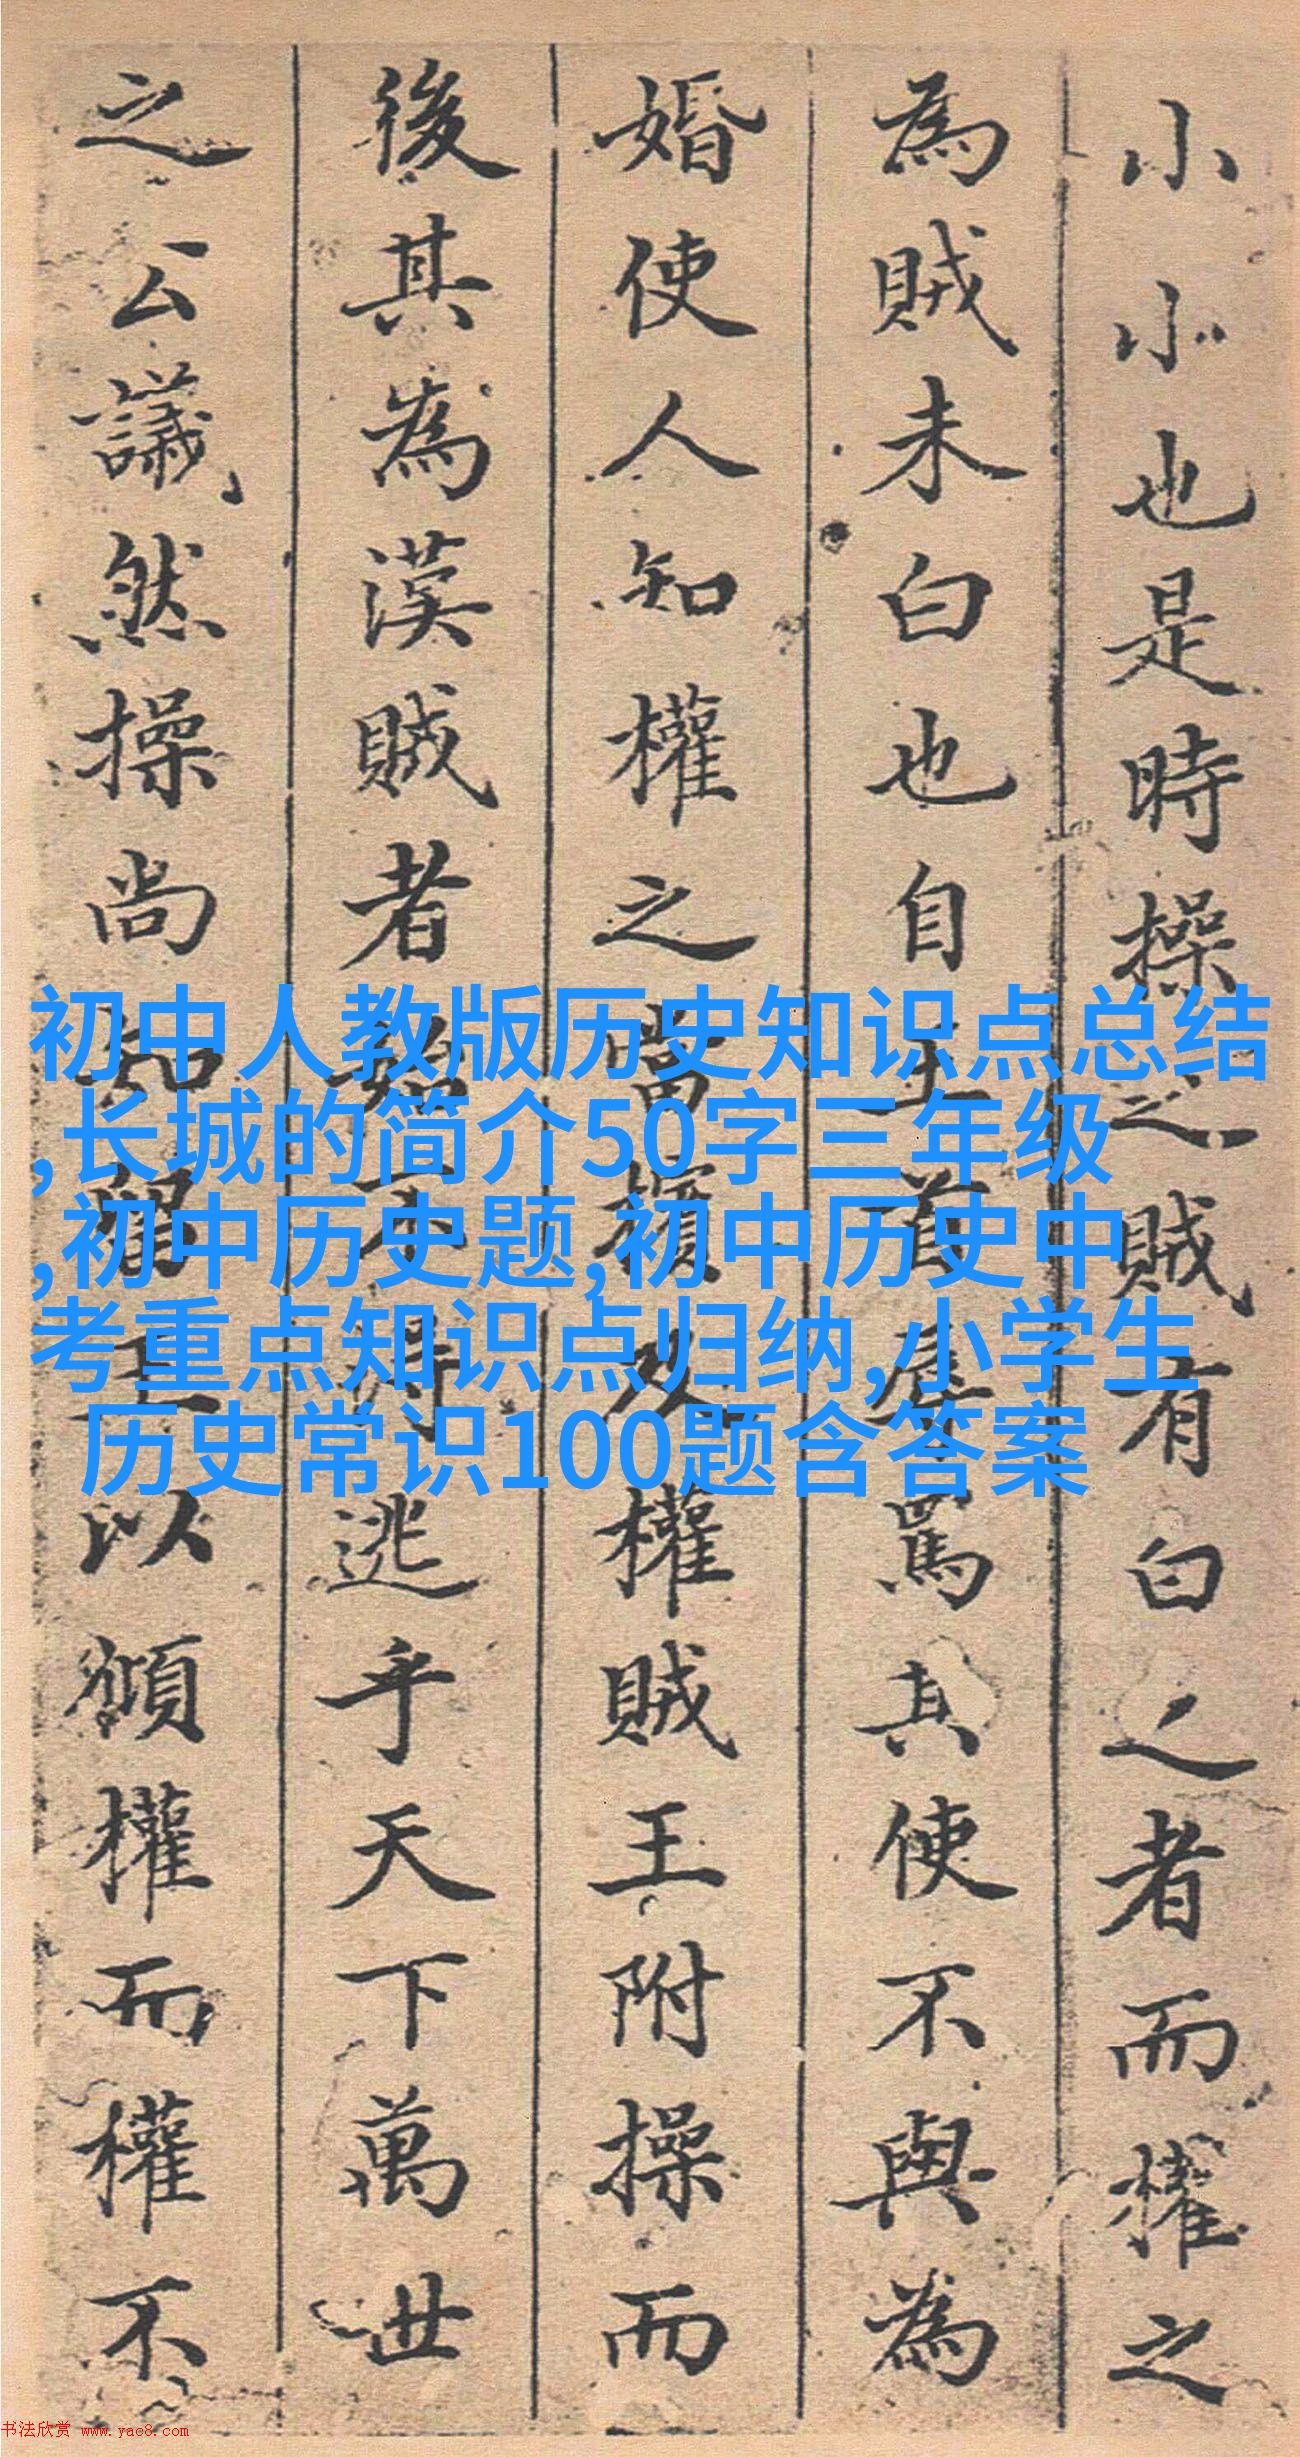 小小也是時操之賊有白之者而權之
為賊未白也自王首辱罵其使不與為
婚使人知權之當權賊王附操而
後其為漢賊者始不得逃乎天下萬世
之公議然操尚知王以權而權不
初中人教版历史知识点总结
,长城的简介50字三年级
,初中历史题,初中历史中
考重点知识点归纳,小学生
历史常识100题含答案
书法欣赏 www.yac8.com